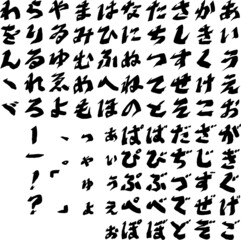 あいうえお
かきくけこ
さしすせそ
たちつてと
なにぬねの
はひふへほ
まみむめも
やゐゆゑよ
らりるれろ
わをんゝゞ
がぎぐげご
ざじずぜぞ
だぢづでど
ばびぶべぼ
ぱぴぷぺぽ
ぁぃぅぇぉ
っゃゅょ
、。「」
ー―！？